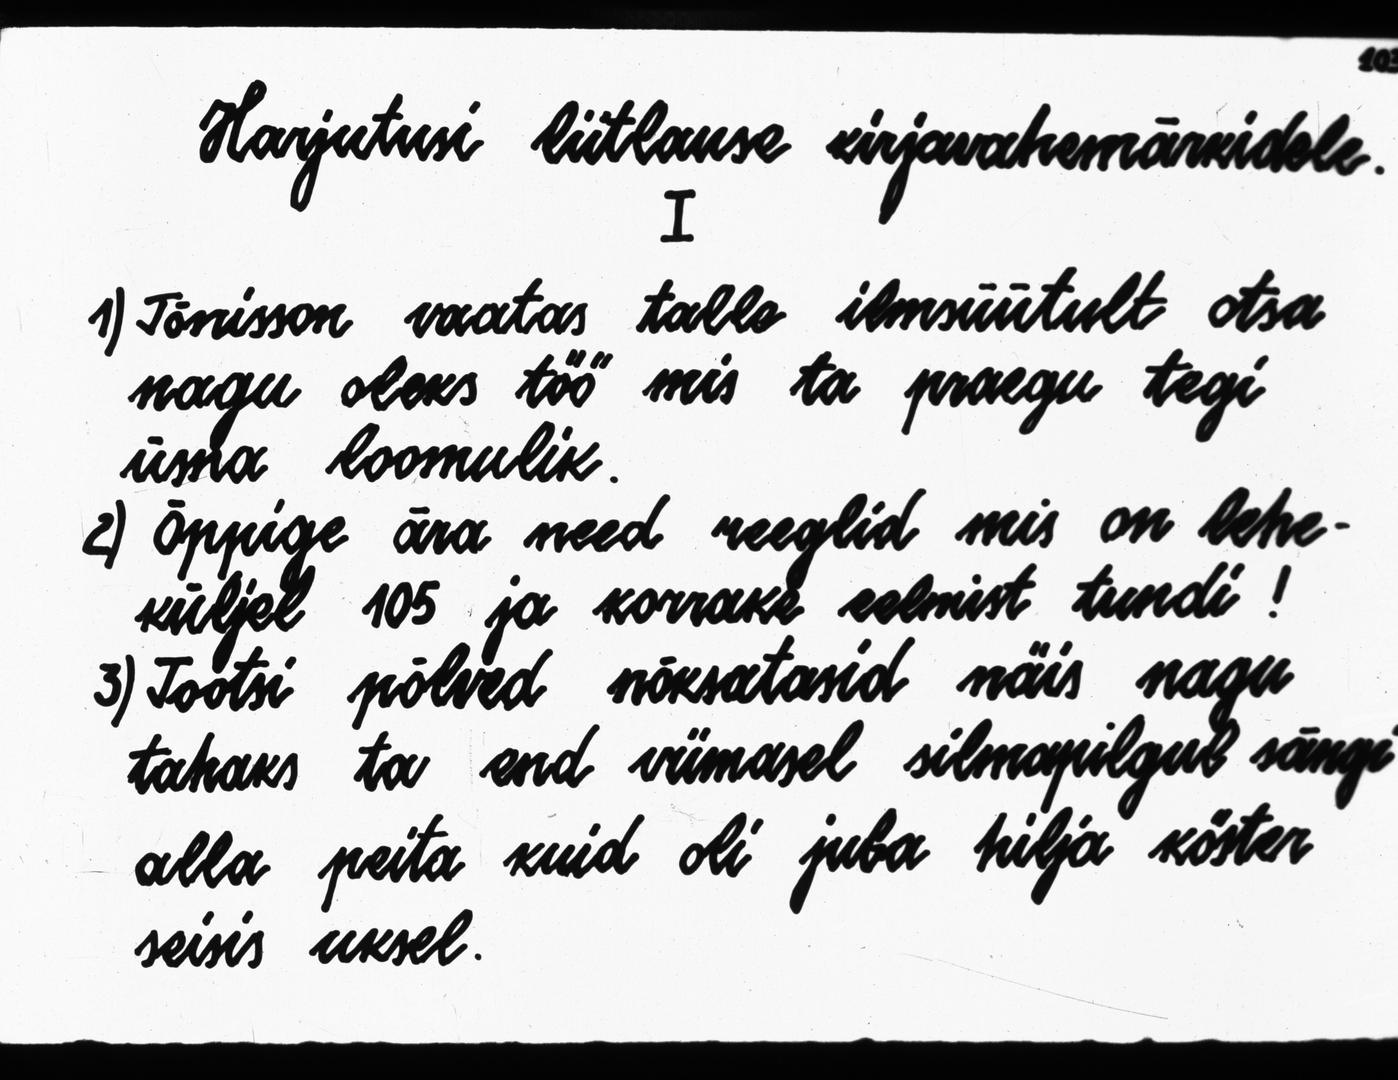 103
Harjutusi liitlause kirjavahemärkidele.
I
1) Tõnisson vaatas talle ilmsüütult otsa
nagu oleks töö mis ta praegu tegi
üsna loomulik.
2) Õppige ära need reeglid mis on lehe-
küljel 105 ja korrake eelmist tundi!
3) Tootsi põlved nõksatasid näis nagu
tahaks ta end viimasel silmapilgul sängi
alla peita kuid oli juba hilja köster
seisis uksel.